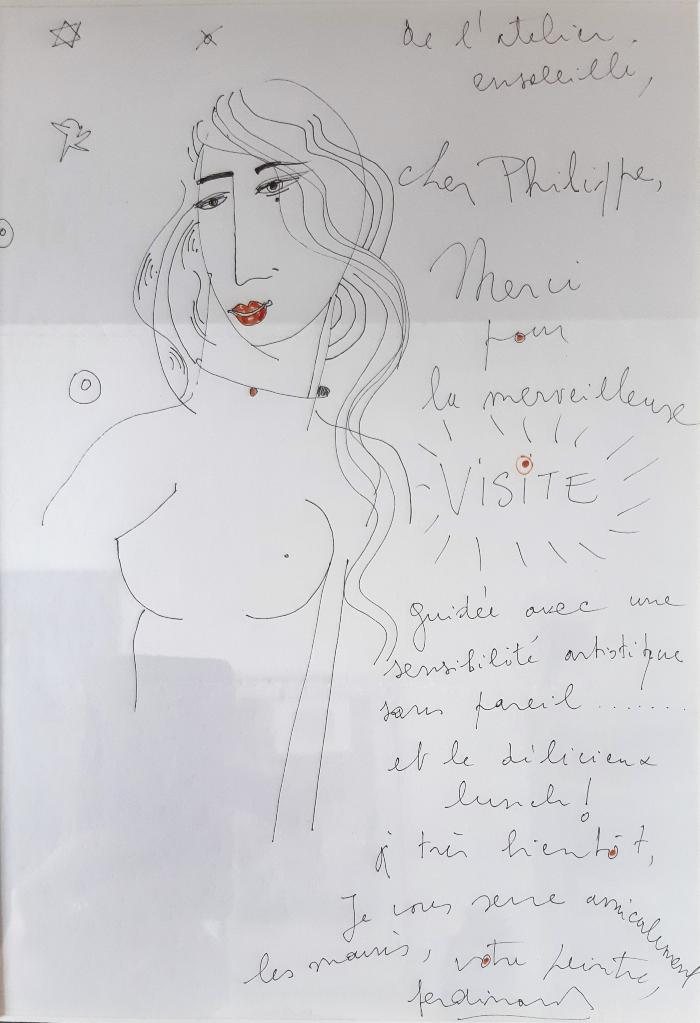 de l'atelier
ensoleillé,
cher Philippe,
Merci
pour
la merveilleuse
VISITE
guidée avec une
sensibilité artistique
sans pareil ........
et le délicieux
lunch!
à très bientôt,
Je vous serre amicalement
les mains, votre peintre,
ferdinand